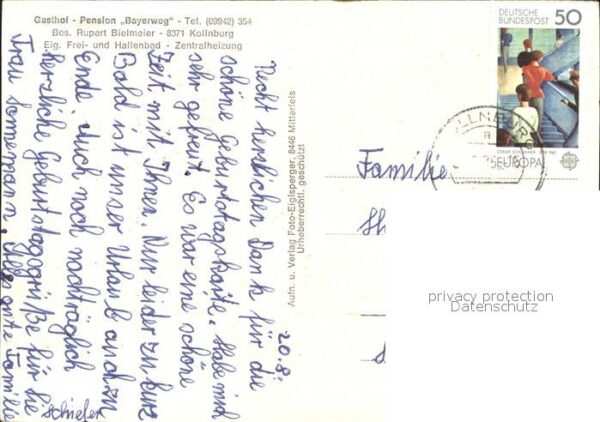 Gasthof - Pension „Bayerweg" - Tel. (09942) 354
Bes. Rupert Bielmeier - 8371 Kollnburg
Eig. Frei- und Hallenbad - Zentralheizung
20.8.
Recht herzlichen Dank für die
schöne Geburtstagskarte. Habe mich
sehr gefreut. Es war eine schöne
Zeit mit Ihnen. Nur leider zu kurz
Bald ist unser Urlaub auch zu
Ende. Auch noch nachträglich
herzliche Geburtstagsgrüße für Sie
Frau Sonnemann. Alles gute Familie
Schiefer
Aufn. u. Verlag Foto-Eiglsperger, 8446 Mitterfels
Urheberrechtl. geschützt
DEUTSCHE
BUNDESPOST 50
EUROPA
Familie
privacy protection
Datenschutz